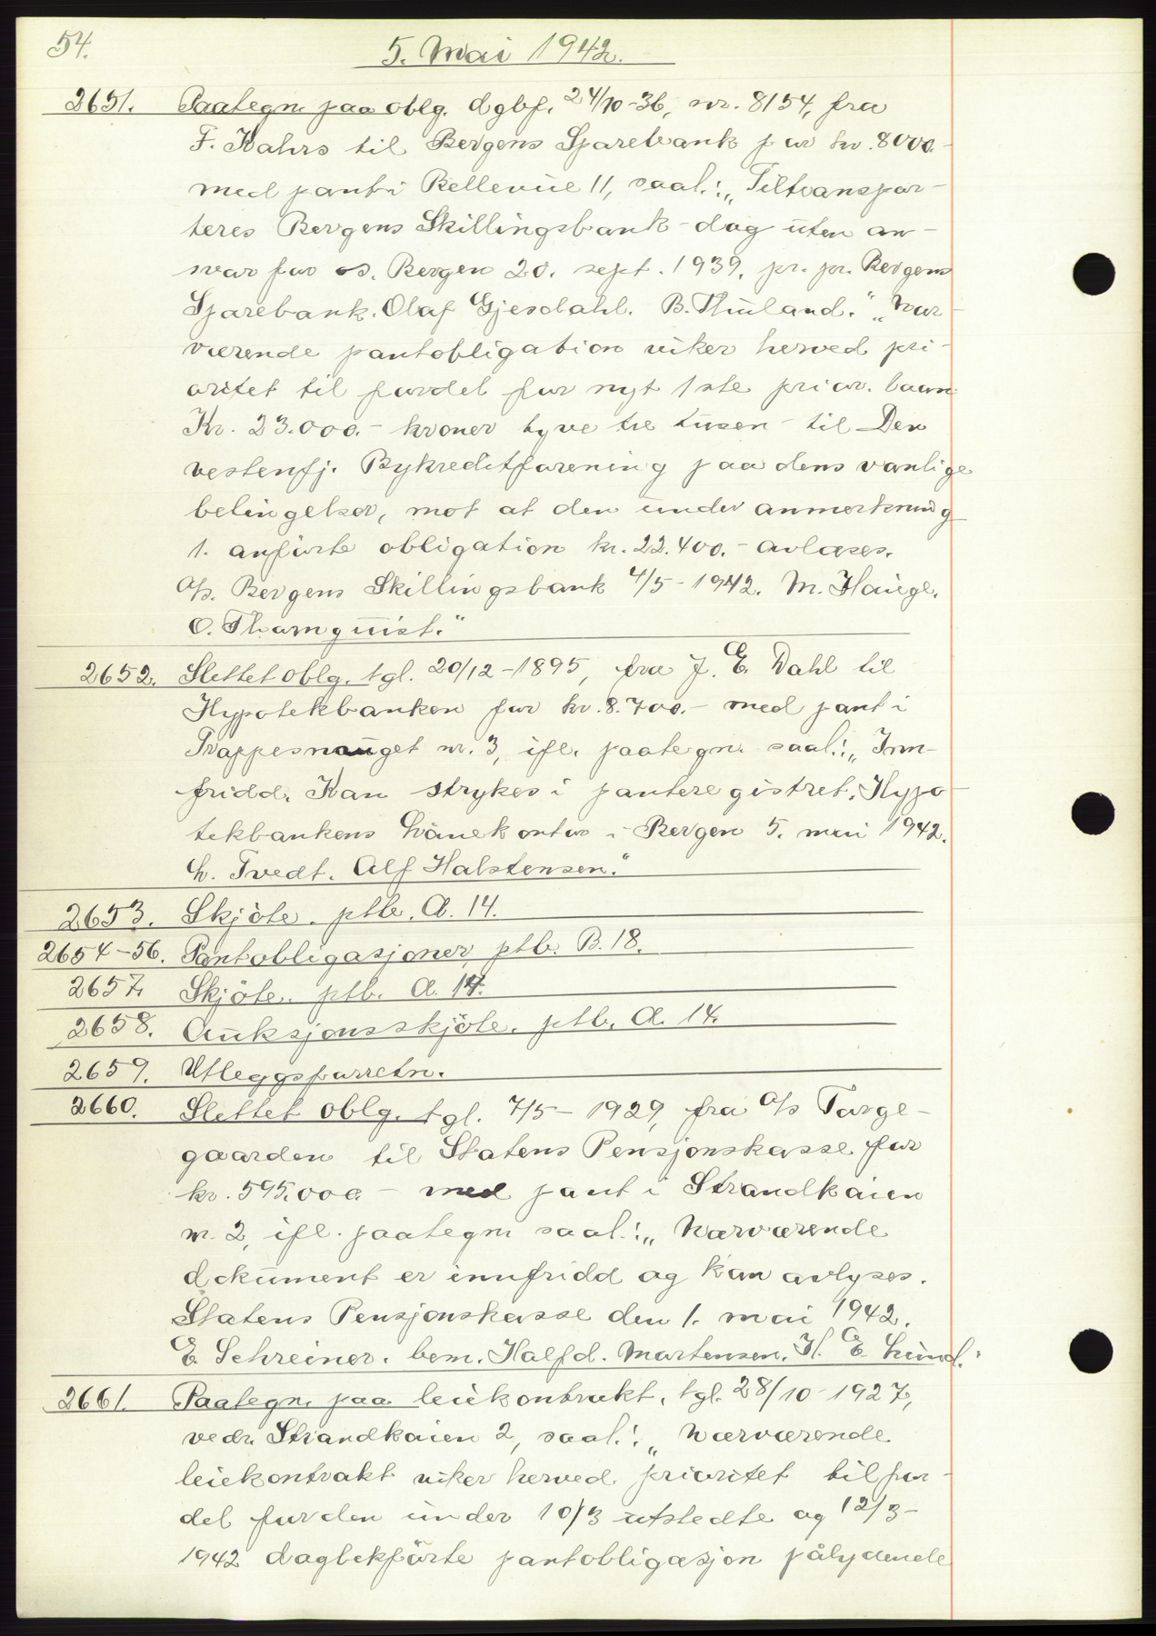 54.
5. Mai 1942.
2651. Paategn. paa oblg. dgbf. 24/10-36, nr. 8154, fra
F. Kahrs til Bergens Sparebank for kr. 8000.-
med pant i Bellevue 11, saal.: „Tiltranspor-
teres Bergens Skillingsbank - dog uten an-
svar for os. Bergen 20. sept. 1939. pr. pr. Bergens
Sparebank. Olaf Gjesdahl. B. Thuland." „Nær-
værende pantobligation viker herved pri-
oritet til fordel for nyt 1ste prior. laan
Kr. 23.000.- kroner tyve tre tusen - til Den
vestenfj. Bykreditforening paa dens vanlige
betingelser, mot at den under anmerkning
1. anførte obligation kr. 22.400.- avlæses.
A/s. Bergens Skillingsbank 4/5-1942. M. Hauge.
O. Thornquist."
2652. Slettet oblg. tgl. 20/12-1895, fra J. E. Dahl til
Hypotekbanken for kr. 8.700.- med pant i
Trappesmauget nr. 3, ifl. paategn. saal.: „Inn-
fridd. Kan strykes i panteregistret. Hypo-
tekbankens Lånekontor i Bergen 5. mai 1942.
L. Tvedt. Alf Halstensen."
2653. Skjöte. ptb. A. 14.
2654-56. Pantobligasjoner ptb. B. 18.
2657. Skjöte. ptb. A. 14.
2658. Auksjonsskjöte. ptb. A. 14.
2659. Utleggsforretn.
2660. Slettet oblg. tgl. 7/5-1929, fra A/s Torge-
gaarden til Statens Pensjonskasse for
kr. 595.000.- med pant i Strandkaien
nr. 2, ifl. paategn saal.: „Nærværende
dokument er innfridd og kan avlyses.
Statens Pensjonskasse den 1. mai 1942.
E Schreiner. bem. Halfd. Martensen. H. E. Lund."
2661. Paategn. paa leiekontrakt, tgl. 28/10-1927,
vedr. Strandkaien 2, saal.: „Nærværende
leiekontrakt viker herved prioritet til for-
del for den under 10/3 utstedte og 12/3-
1942 dagbokførte pantobligasjon pålydende